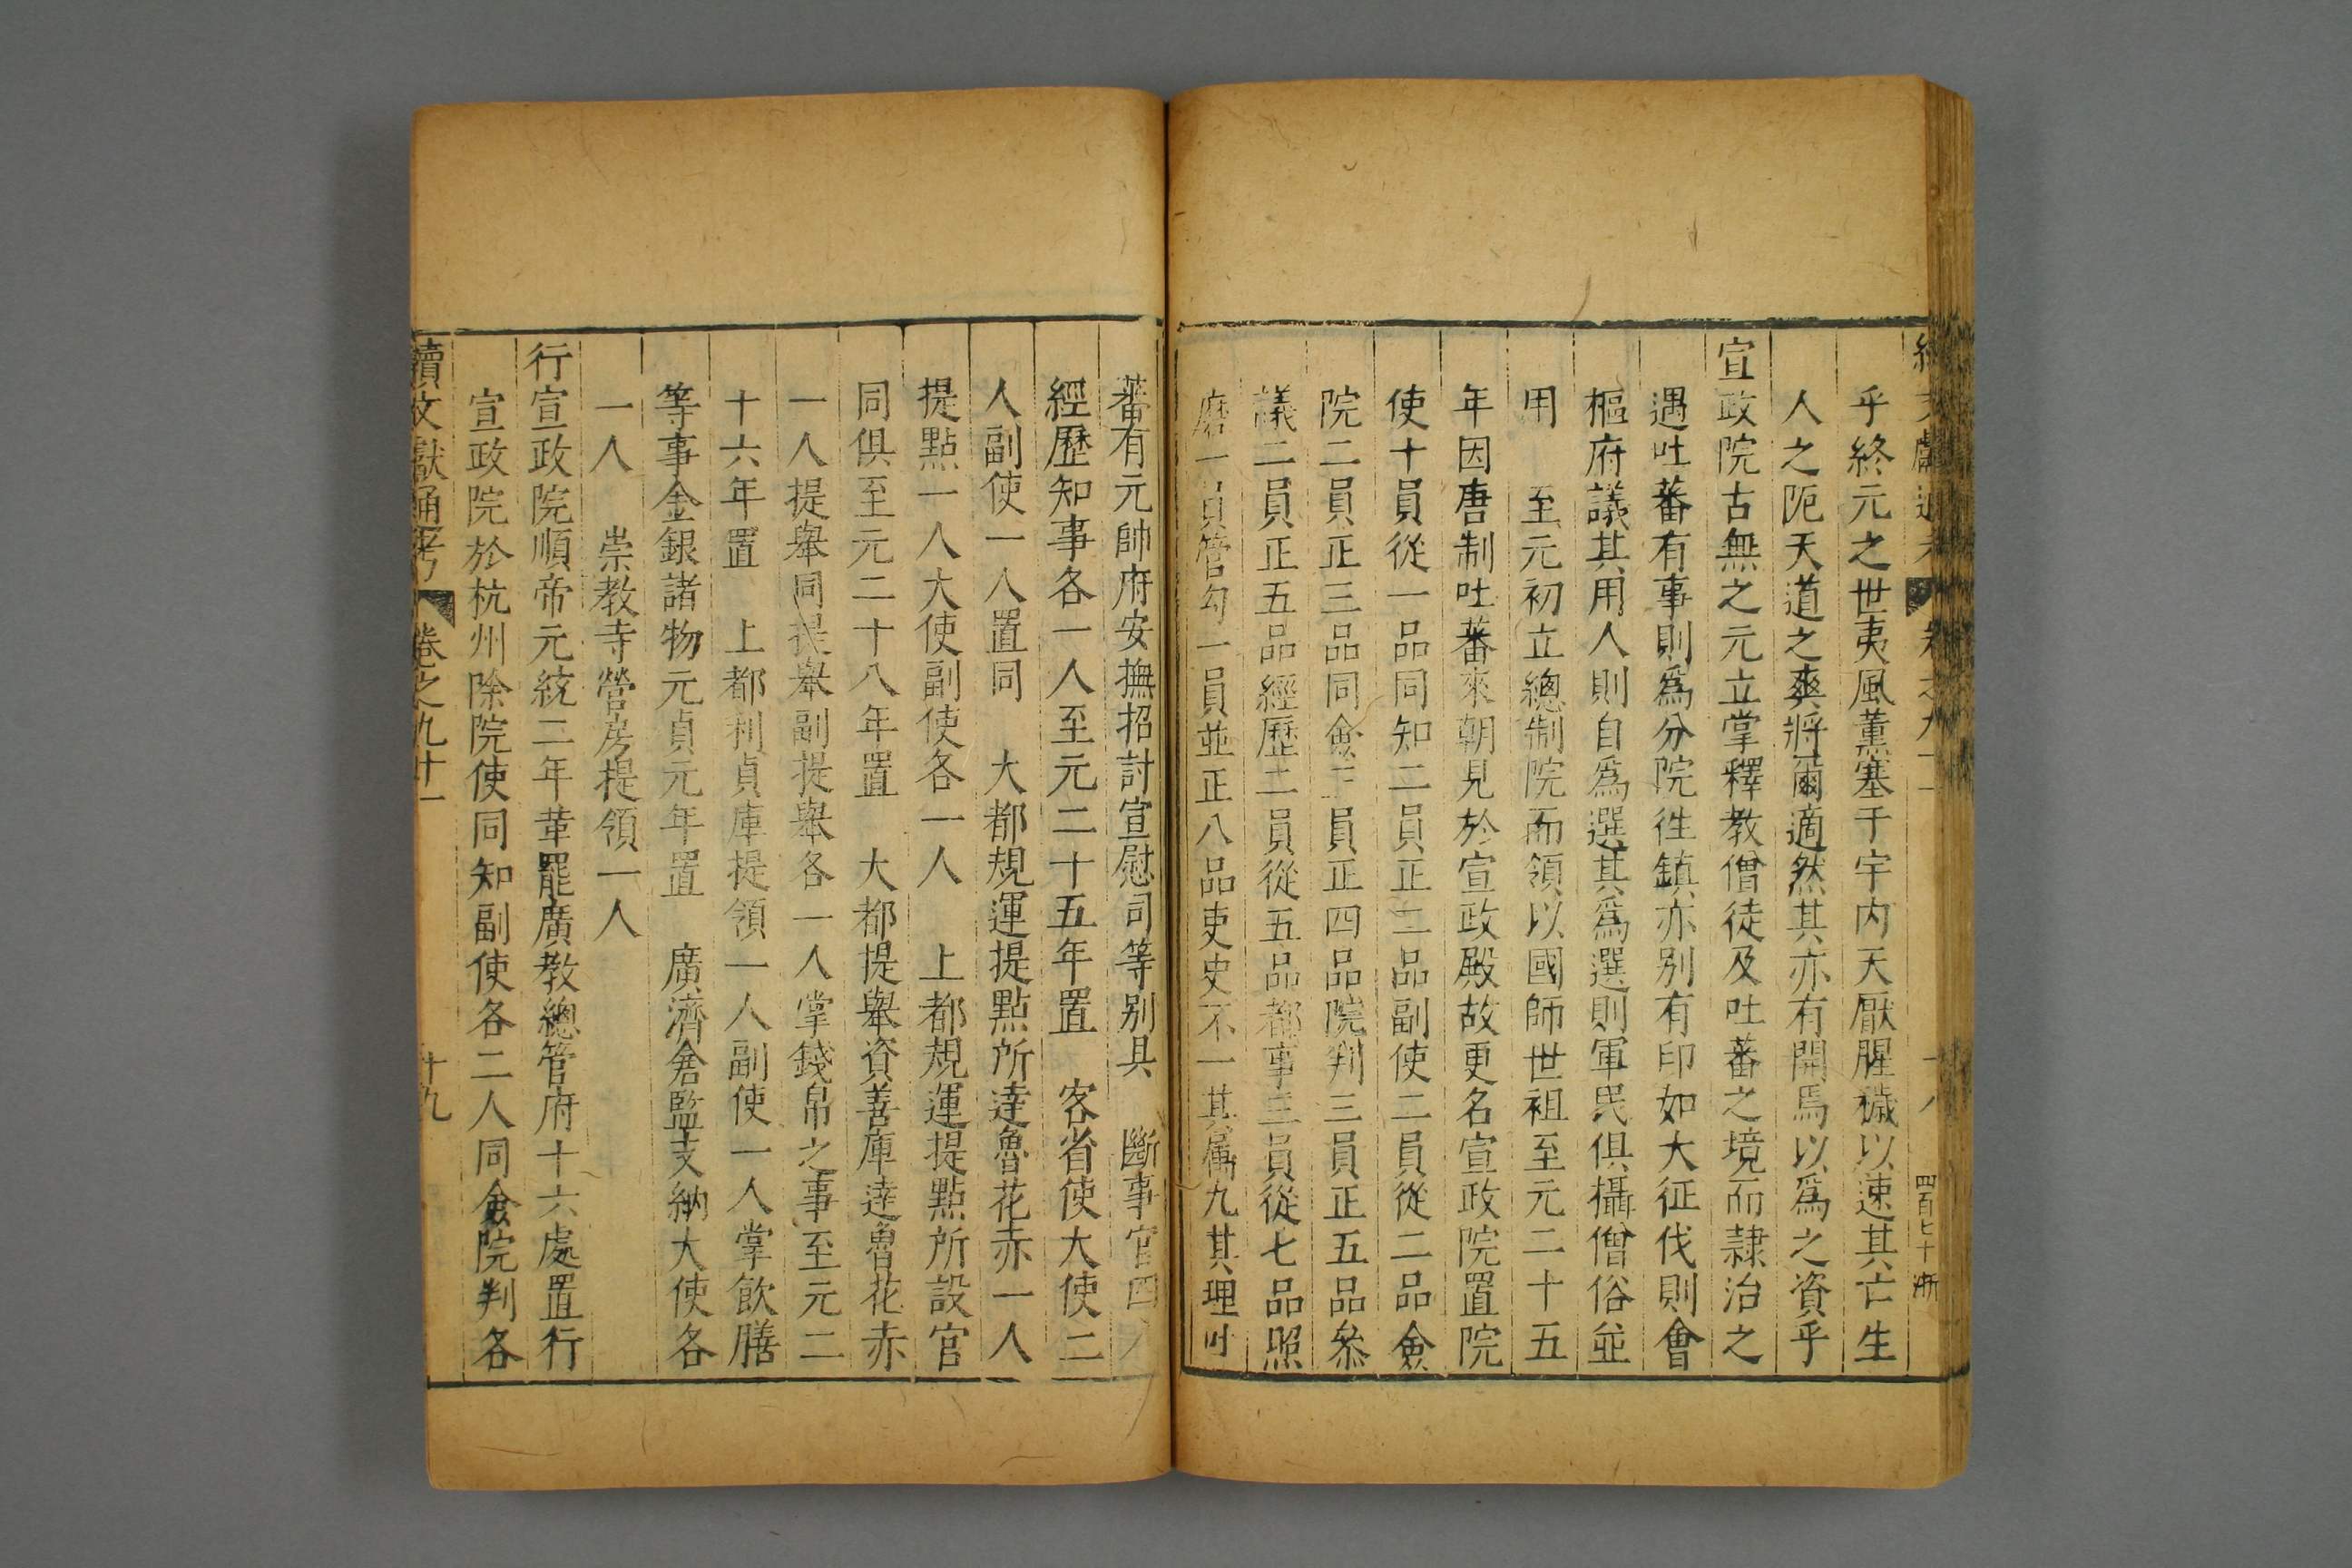 乎終元之世夷風薰塞于宇内天厭腥穢以速其亡生
人之阨天道之爽將爾適然其亦有開焉以爲之資乎
宣政院古無之元立掌釋教僧徒及吐蕃之境而隷治之
遇吐蕃有事則爲分院徃鎮亦别有印如大征伐則會
樞府議其用人則自爲選其爲選則軍民俱攝僧俗並
用　至元初立總制院而領以國師世祖至元二十五
年因唐制吐蕃來朝見於宣政殿故更名宣政院置院
使十員從一品同知二員正二品副使二員從二品僉
院二員正三品同僉三員正四品院判三員正五品叅
議二員正五品經歷二員從五品都事三員從七品照
磨一員管勾一員並正八品吏史不一其属九其理吐
四百七十
蕃有元帥府安撫招討宣慰司等别具　斷事官四人
經歷知事各一人至元二十五年置　客省使大使二
人副使一人置同　大都規運提點所達魯花赤一人
提點一人大使副使各一人　上都規運提點所設官
同俱至元二十八年置　大都提舉資善庫達魯花赤
一人提舉同提舉副提舉各一人掌錢帛之事至元二
十六年置　上都利貞庫提領一人副使一人掌飲膳
等事金銀諸物元貞元年置　廣濟倉監支納大使各
一人　崇教寺營房提領一人
行宣政院順帝元統二年革罷廣教總管府十六處置行
宣政院於杭州除院使同知副使各二人同僉院判各
續文獻通考　卷之九十一　十九